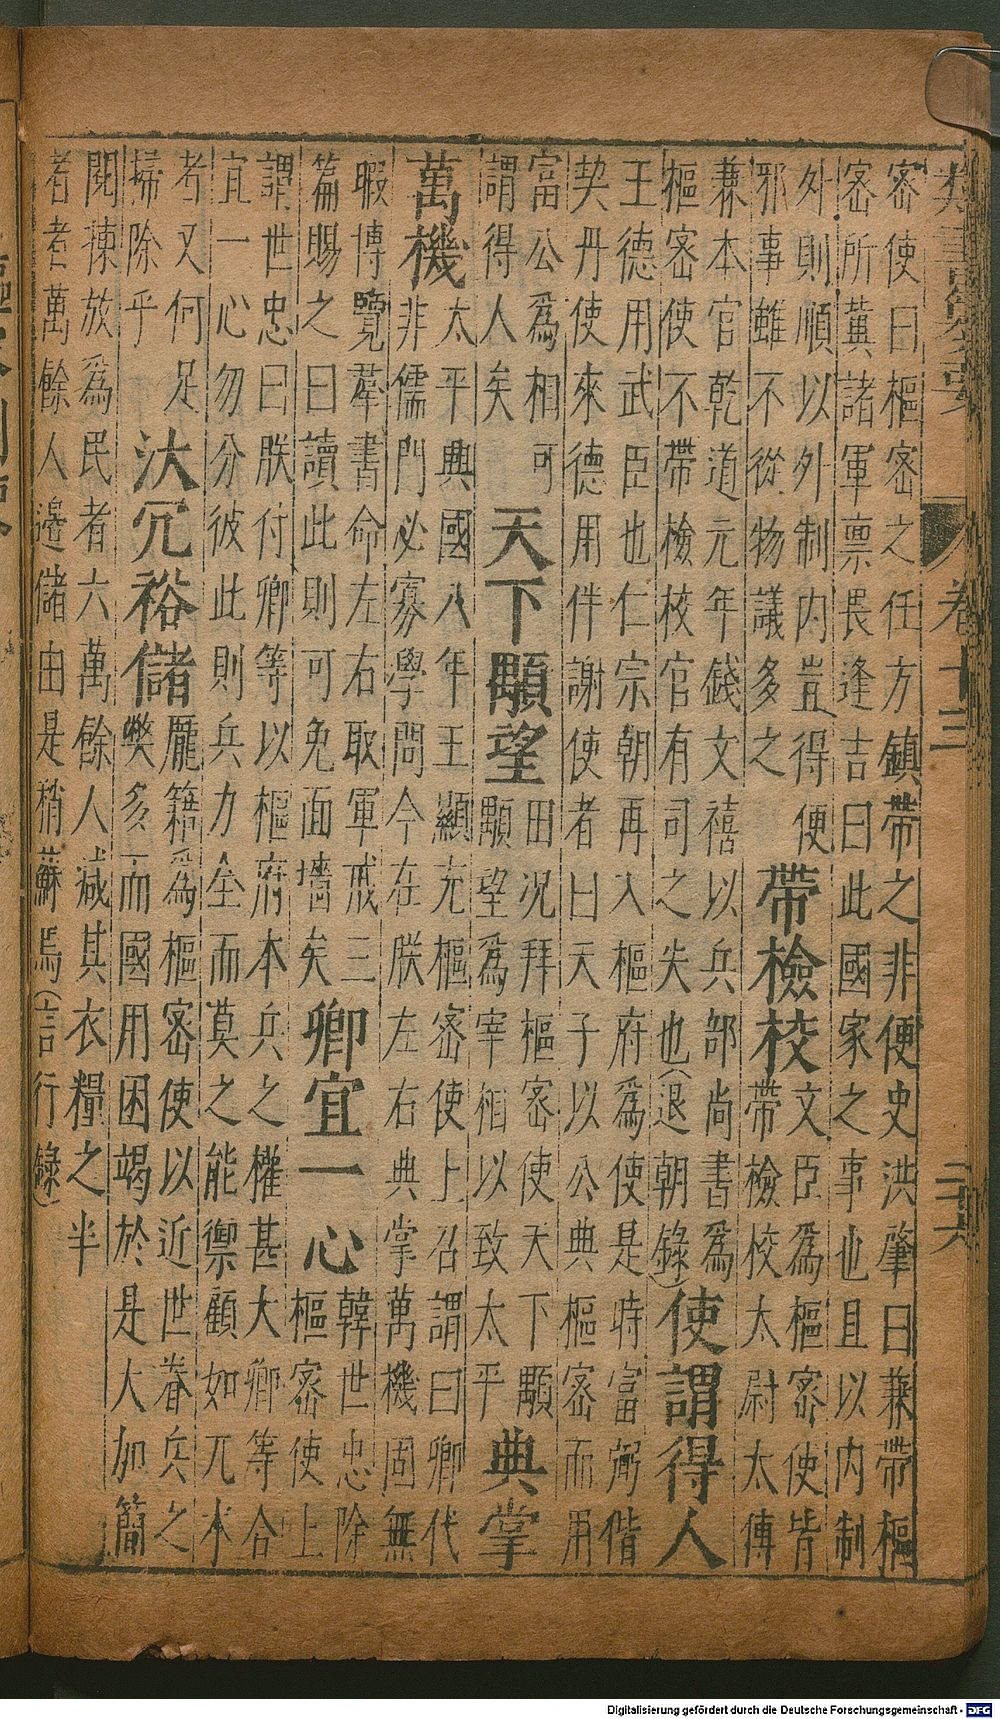 密使曰樞密之任方鎮帶之非便史洪肇曰兼帶樞
密所冀諸軍禀畏逢吉曰此國家之事也且以內制
外則順以外制內豈得便
邪事雖不從物議多之
帶檢校
文臣為樞密使皆
帶檢校太尉太傅
兼本官乾道元年錢文禧以兵部尚書為
樞密使不帶檢校官有司之失也(退朝錄)
使謂得人
王德用武臣也仁宗朝再入樞府為使是時富弼偕
契丹使來德用伴謝使者曰天子以公典樞密而用
富公為相可
謂得人矣
天下顒望
田况拜樞密使天下顒
顒望為宰相以致太平
典掌
萬機
太平興國八年王顯充樞密使上召謂曰卿代
非儒門必寡學問今在朕左右典掌萬機固無
暇博覽羣書命左右取軍戒三
篇賜之曰讀此則可免面墻矣
卿宜一心
韓世忠除
樞密使上
謂世忠曰朕付卿等以樞府本兵之權甚大卿等合
宜一心勿分彼此則兵力全而莫之能禦顧如兀本
者又何足
掃除乎
汰冗裕儲
龐籍為樞密使以近世養兵之
獘多而國用困竭於是大加簡
閱揀放為民者六萬餘人減其衣糧之半
者者萬餘人邊儲由是稍蘇焉(言行錄)
卷十三
二十六
Digitalisierung gefördert durch die Deutsche Forschungsgemeinschaft - DFG